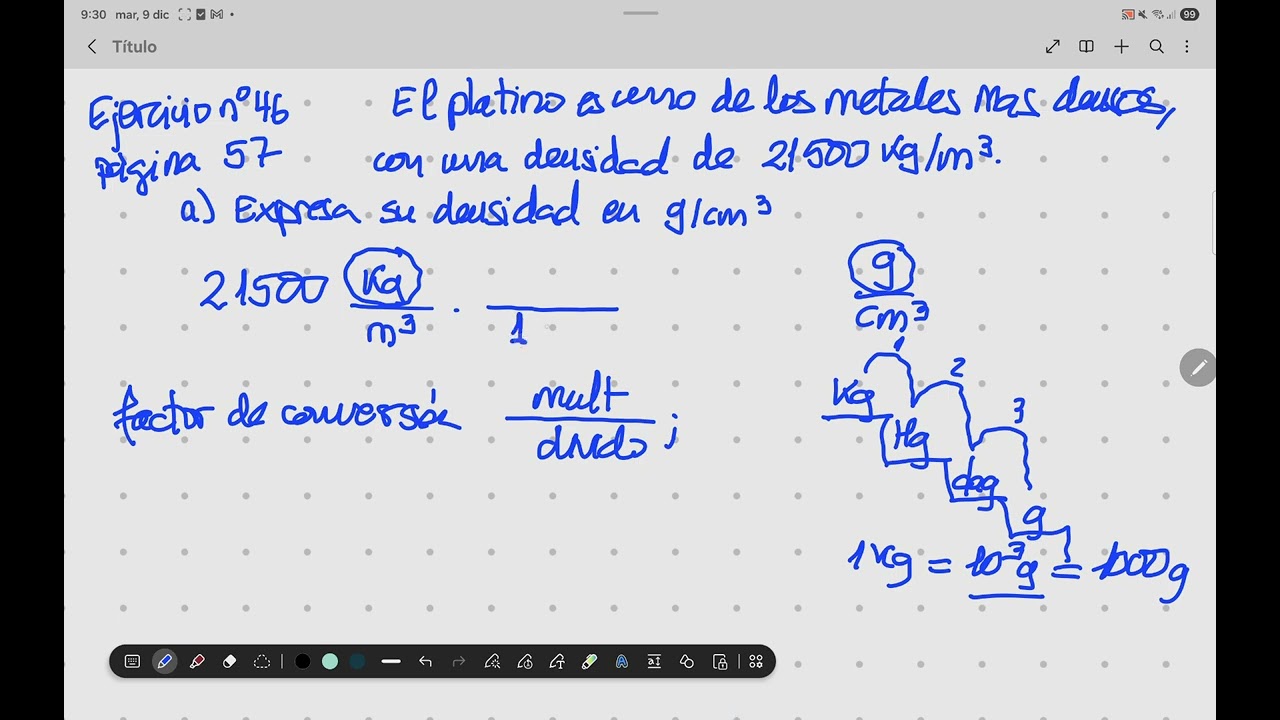 9:30 mar, 9 dic
99
Título
Ejercicio nº 46 El platino es uno de los metales mas densos,
página 57 con una densidad de 21500 Kg/m³.
a) Expresa su densidad en g/cm³
21500 Kg/m³ · /1 g/cm³
factor de conversión mult/divido ;
1 2 3
Kg
Hg
dag
g
1 Kg = 10³g = 1000g